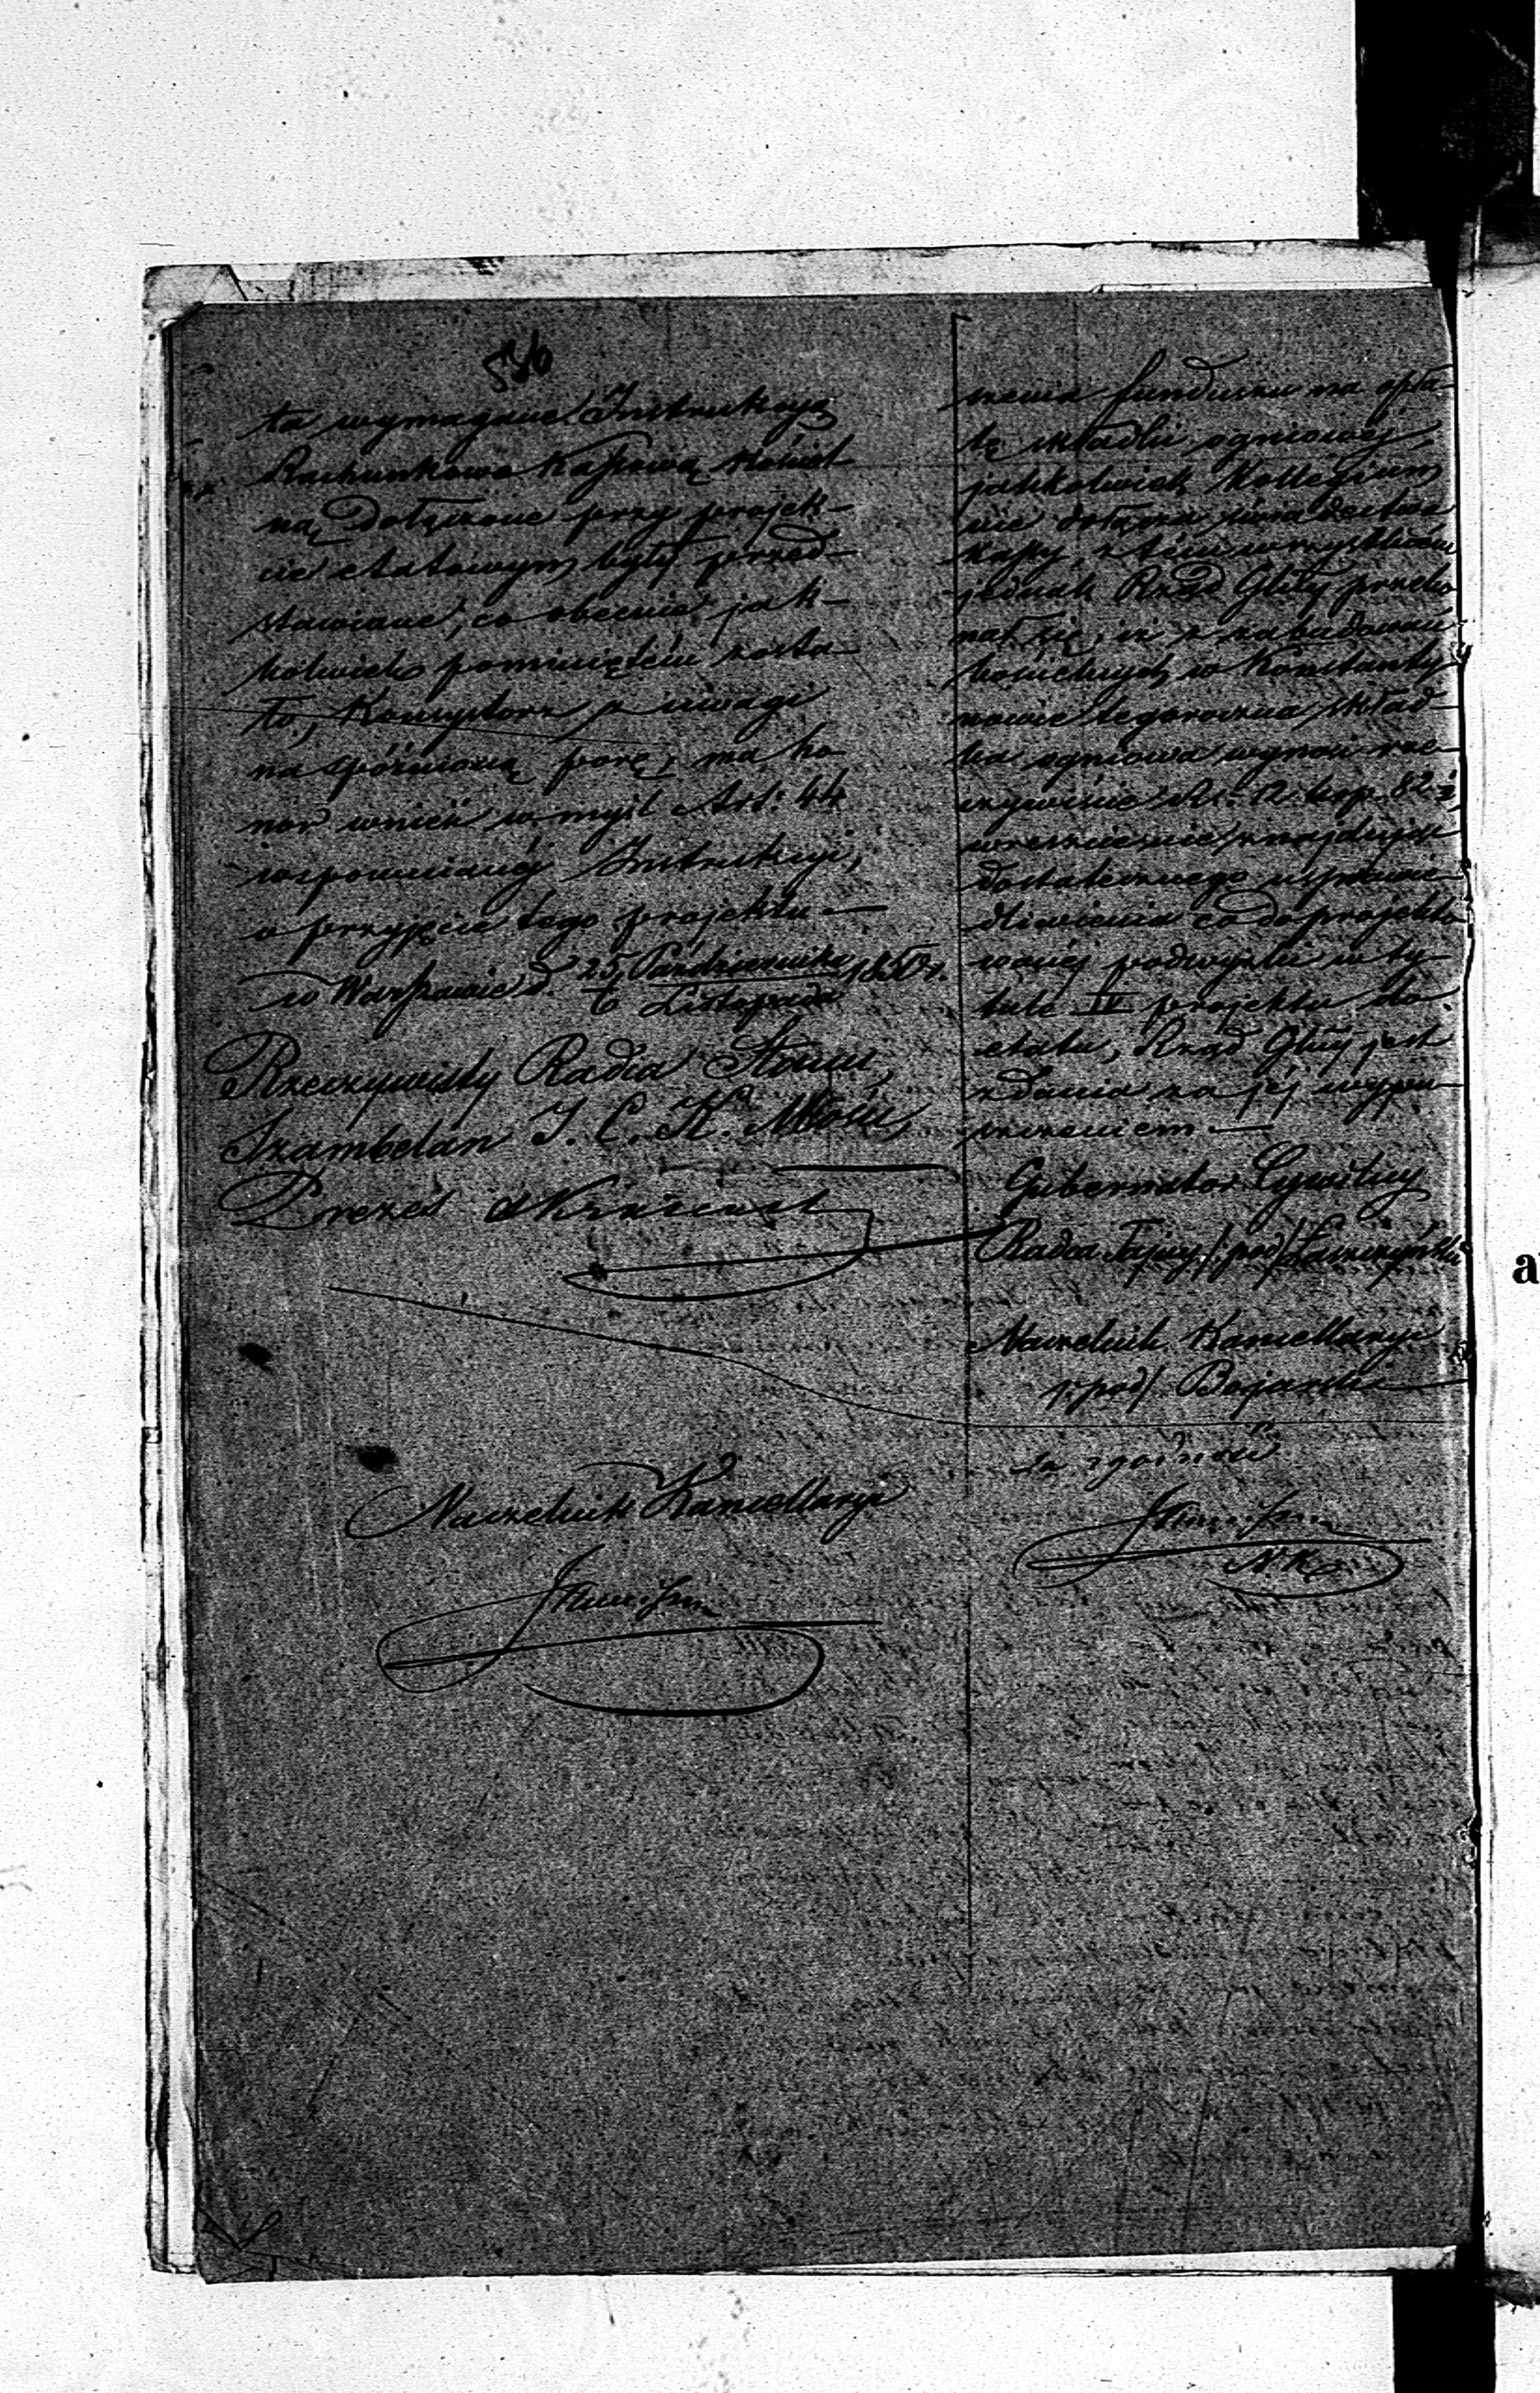 536
ta wymagane Instrukcyą
Rachunkowo Kassową Kościel
ną dołączone przy projek-
cie etatowym były przed-
stawiane, co obecnie jak-
kolwiek pominiętém zosta-
ło, Konsystorz z uwagi
na spóźnioną porę, ma ho-
nor wnieść w myśl Art: 44
wspomnianéj Instrukcyi,
o przyjęcie tego projektu —
w Warszawie d. 25 Października
6 Listopada 1850 r.
Rzeczywisty Radca Stanu,
Szambelan J. C. K. Mości,
Prezes
Naczelnik Kancellaryi
szenia funduszu na opła-
tę składki ogniowéj,
jakkolwiek Kollegium
nie dołącza świadectwa
kassy, z tém wszystkiém
jednak Rząd Gllny przeko
nał się, iż z zabudowań
kościelnych w Konstanty
nowie tegoroczna skład-
ka ogniowa wynosi rze-
czywiście Rs. 12 kop. 82 ½,
wreszcie nie znajdując
dostatecznego usprawie-
dliwienia co do projekto
wanéj podwyżki w ty-
tule IV projektu do
etatu, Rząd Gllny jest
zdania za jéj wypu-
szczeniem —
Gubernator Cywilny
Radca Tajny /:pod/ Łaszczyński
Naczelnik Kancellaryi
/:pod/ Bojarski
Za zgodność
N. K.
a